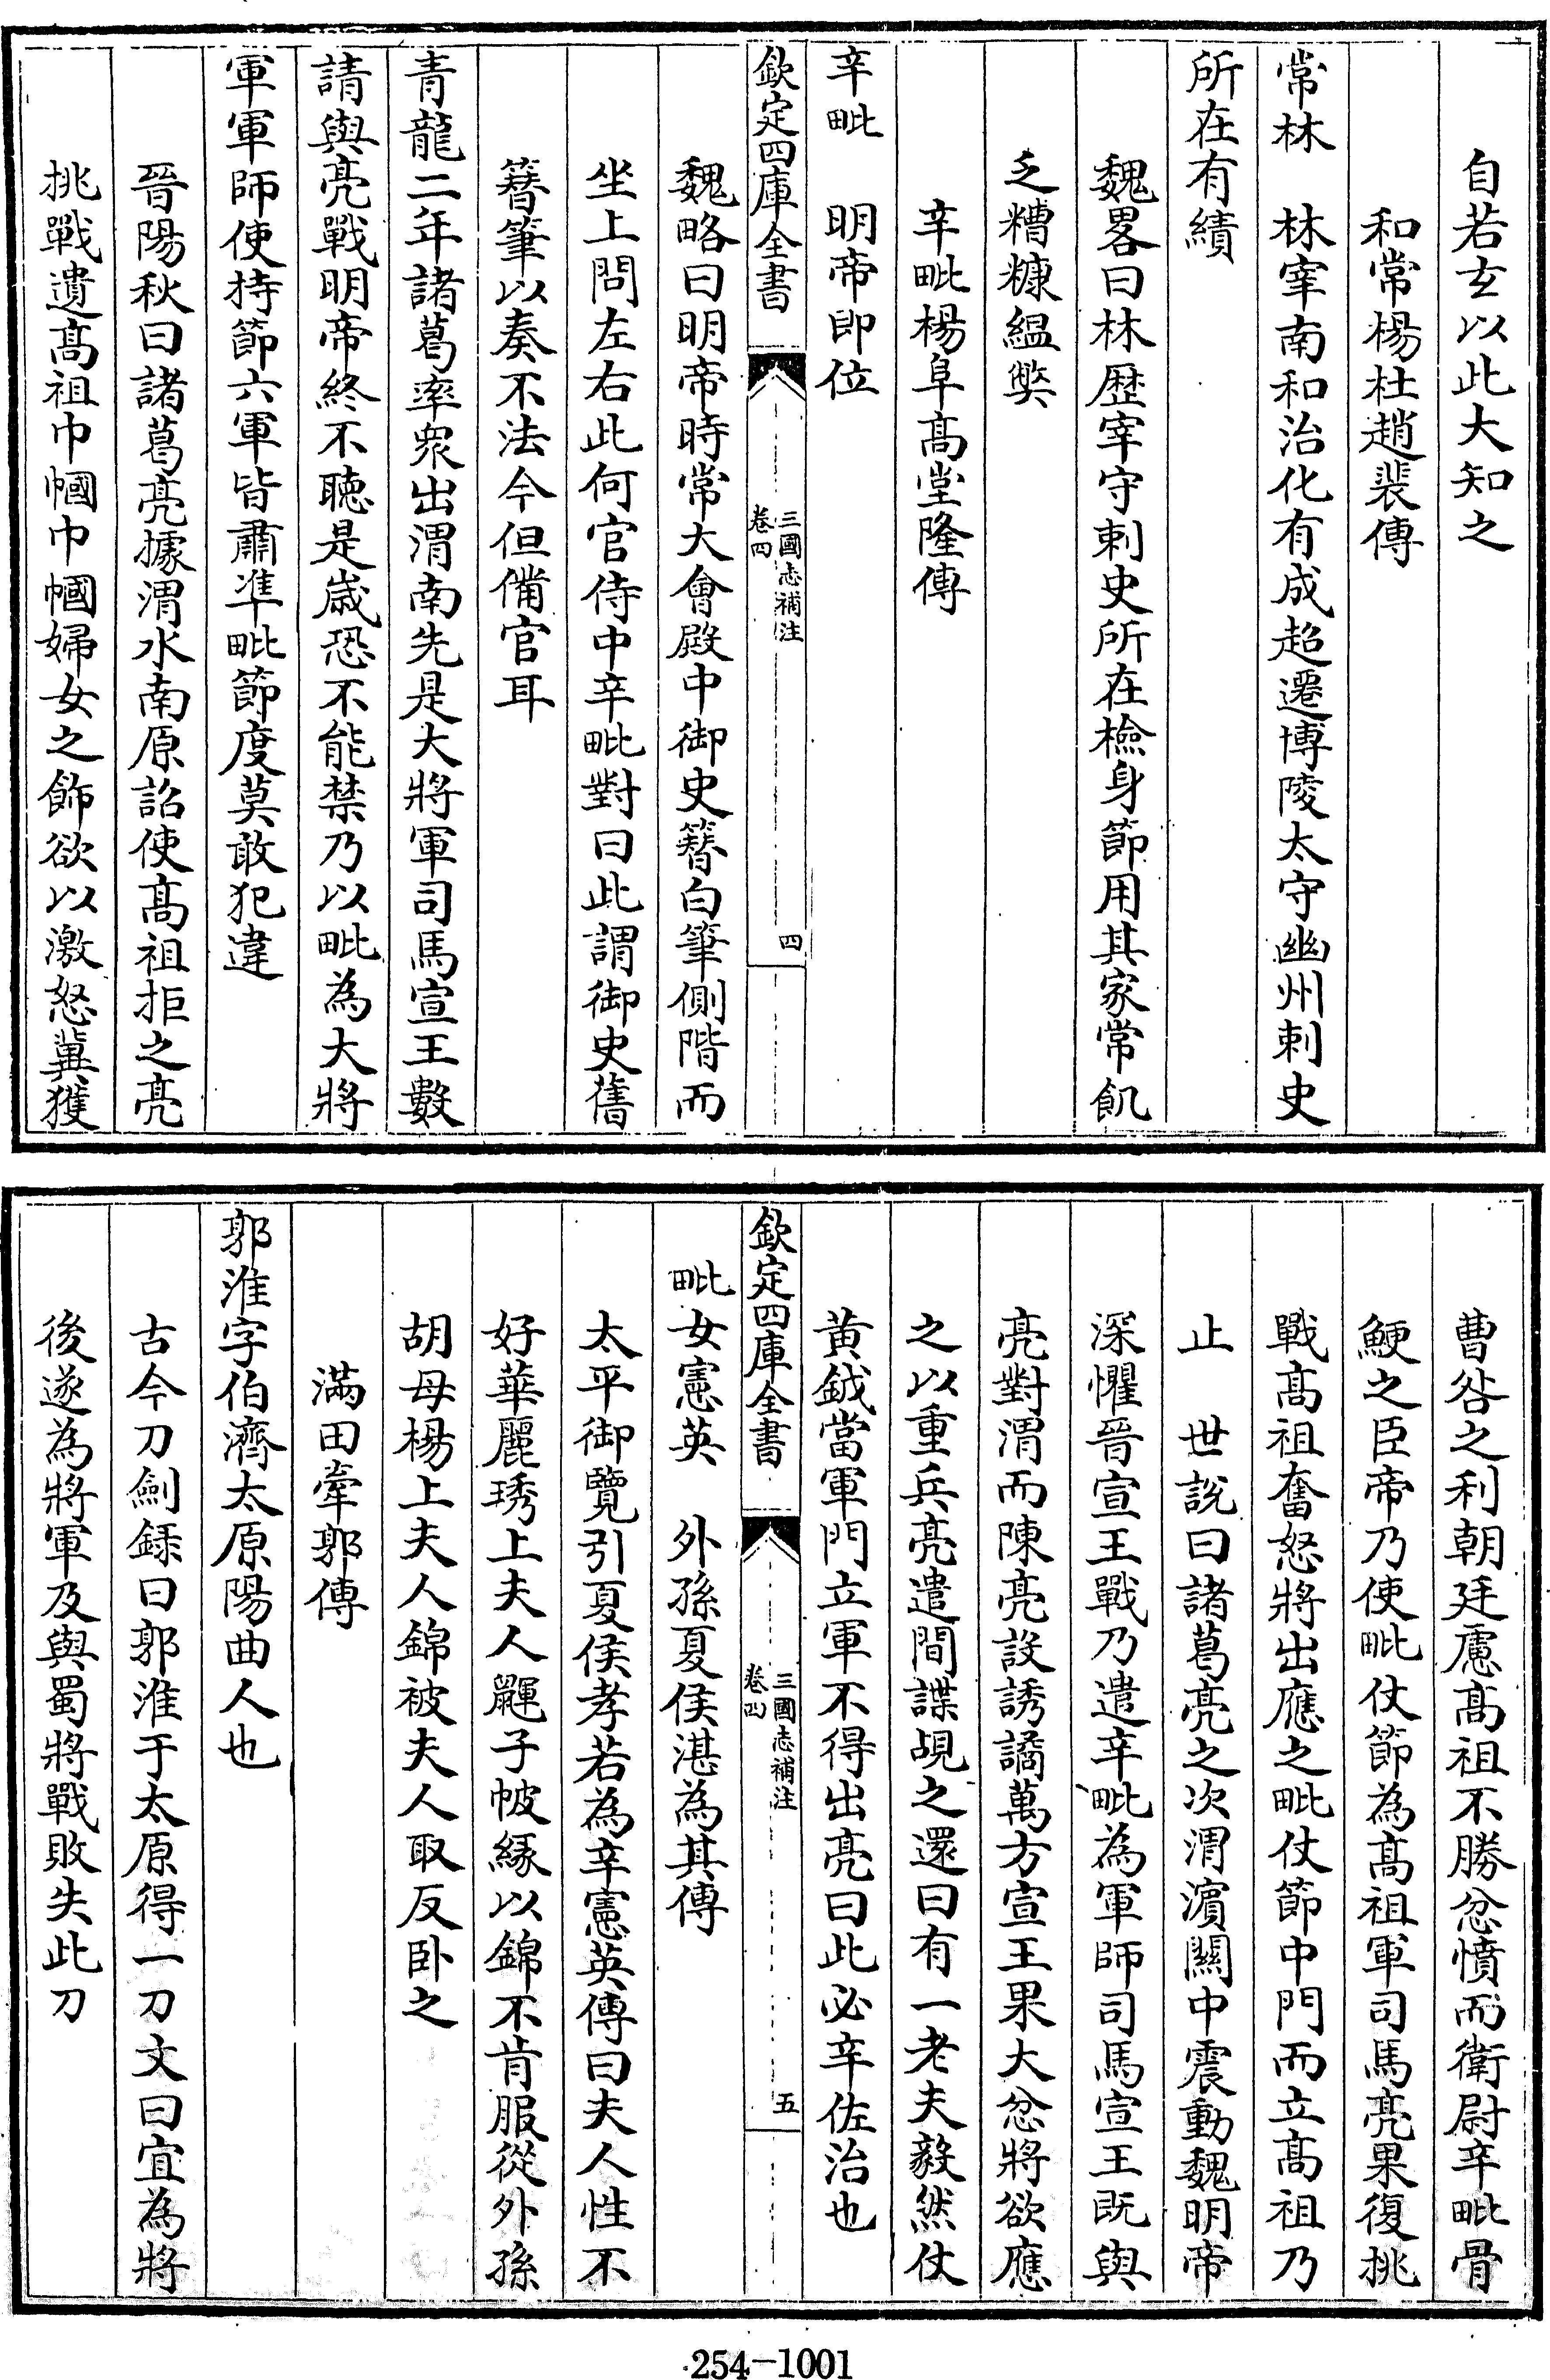 自若玄以此大知之
和常楊杜趙裴傳
常林　林宰南和治化有成超遷博陵太守幽州刺史
所在有績
魏畧曰林歴宰守刺史所在檢身節用其家常飢
乏糟糠縕獘
辛毗楊阜髙堂隆傳
辛毗　明帝即位
欽定四庫全書
三國志補注
卷四
四
魏略曰明帝時常大會殿中御史簮白筆側階而
坐上問左右此何官侍中辛毗對曰此謂御史舊
簮筆以奏不法今但備官耳
青龍二年諸葛率衆出渭南先是大將軍司馬宣王數
請與亮戰明帝終不聴是嵗恐不能禁乃以毗為大將
軍軍師使持節六軍皆肅凖毗節度莫敢犯違
晉陽秋曰諸葛亮據渭水南原詔使髙祖拒之亮
挑戰遺髙祖巾幗巾幗婦女之飾欲以激怒冀獲
曹咎之利朝廷慮髙祖不勝忿憤而衛尉辛毗骨
鯁之臣帝乃使毗仗節為髙祖軍司馬亮果復挑
戰髙祖奮怒將出應之毗仗節中門而立髙祖乃
止　世説曰諸葛亮之次渭濵闗中震動魏明帝
深懼晉宣王戰乃遣辛毗為軍師司馬宣王既與
亮對渭而陳亮設誘譎萬方宣王果大忿將欲應
之以重兵亮遣間諜覘之還曰有一老夫毅然仗
黄鉞當軍門立軍不得出亮曰此必辛佐治也
欽定四庫全書
三國志補注
卷四
五
毗女憲英　外孫夏侯湛為其傳
太平御覽引夏侯孝若為辛憲英傳曰夫人性不
好華麗琇上夫人鼲子帔縁以錦不肯服從外孫
胡母楊上夫人錦被夫人取反卧之
滿田牽郭傳
郭淮字伯濟太原陽曲人也
古今刀劍録曰郭淮于太原得一刀文曰宜為將
後遂為將軍及與蜀將戰敗失此刀
254-1001